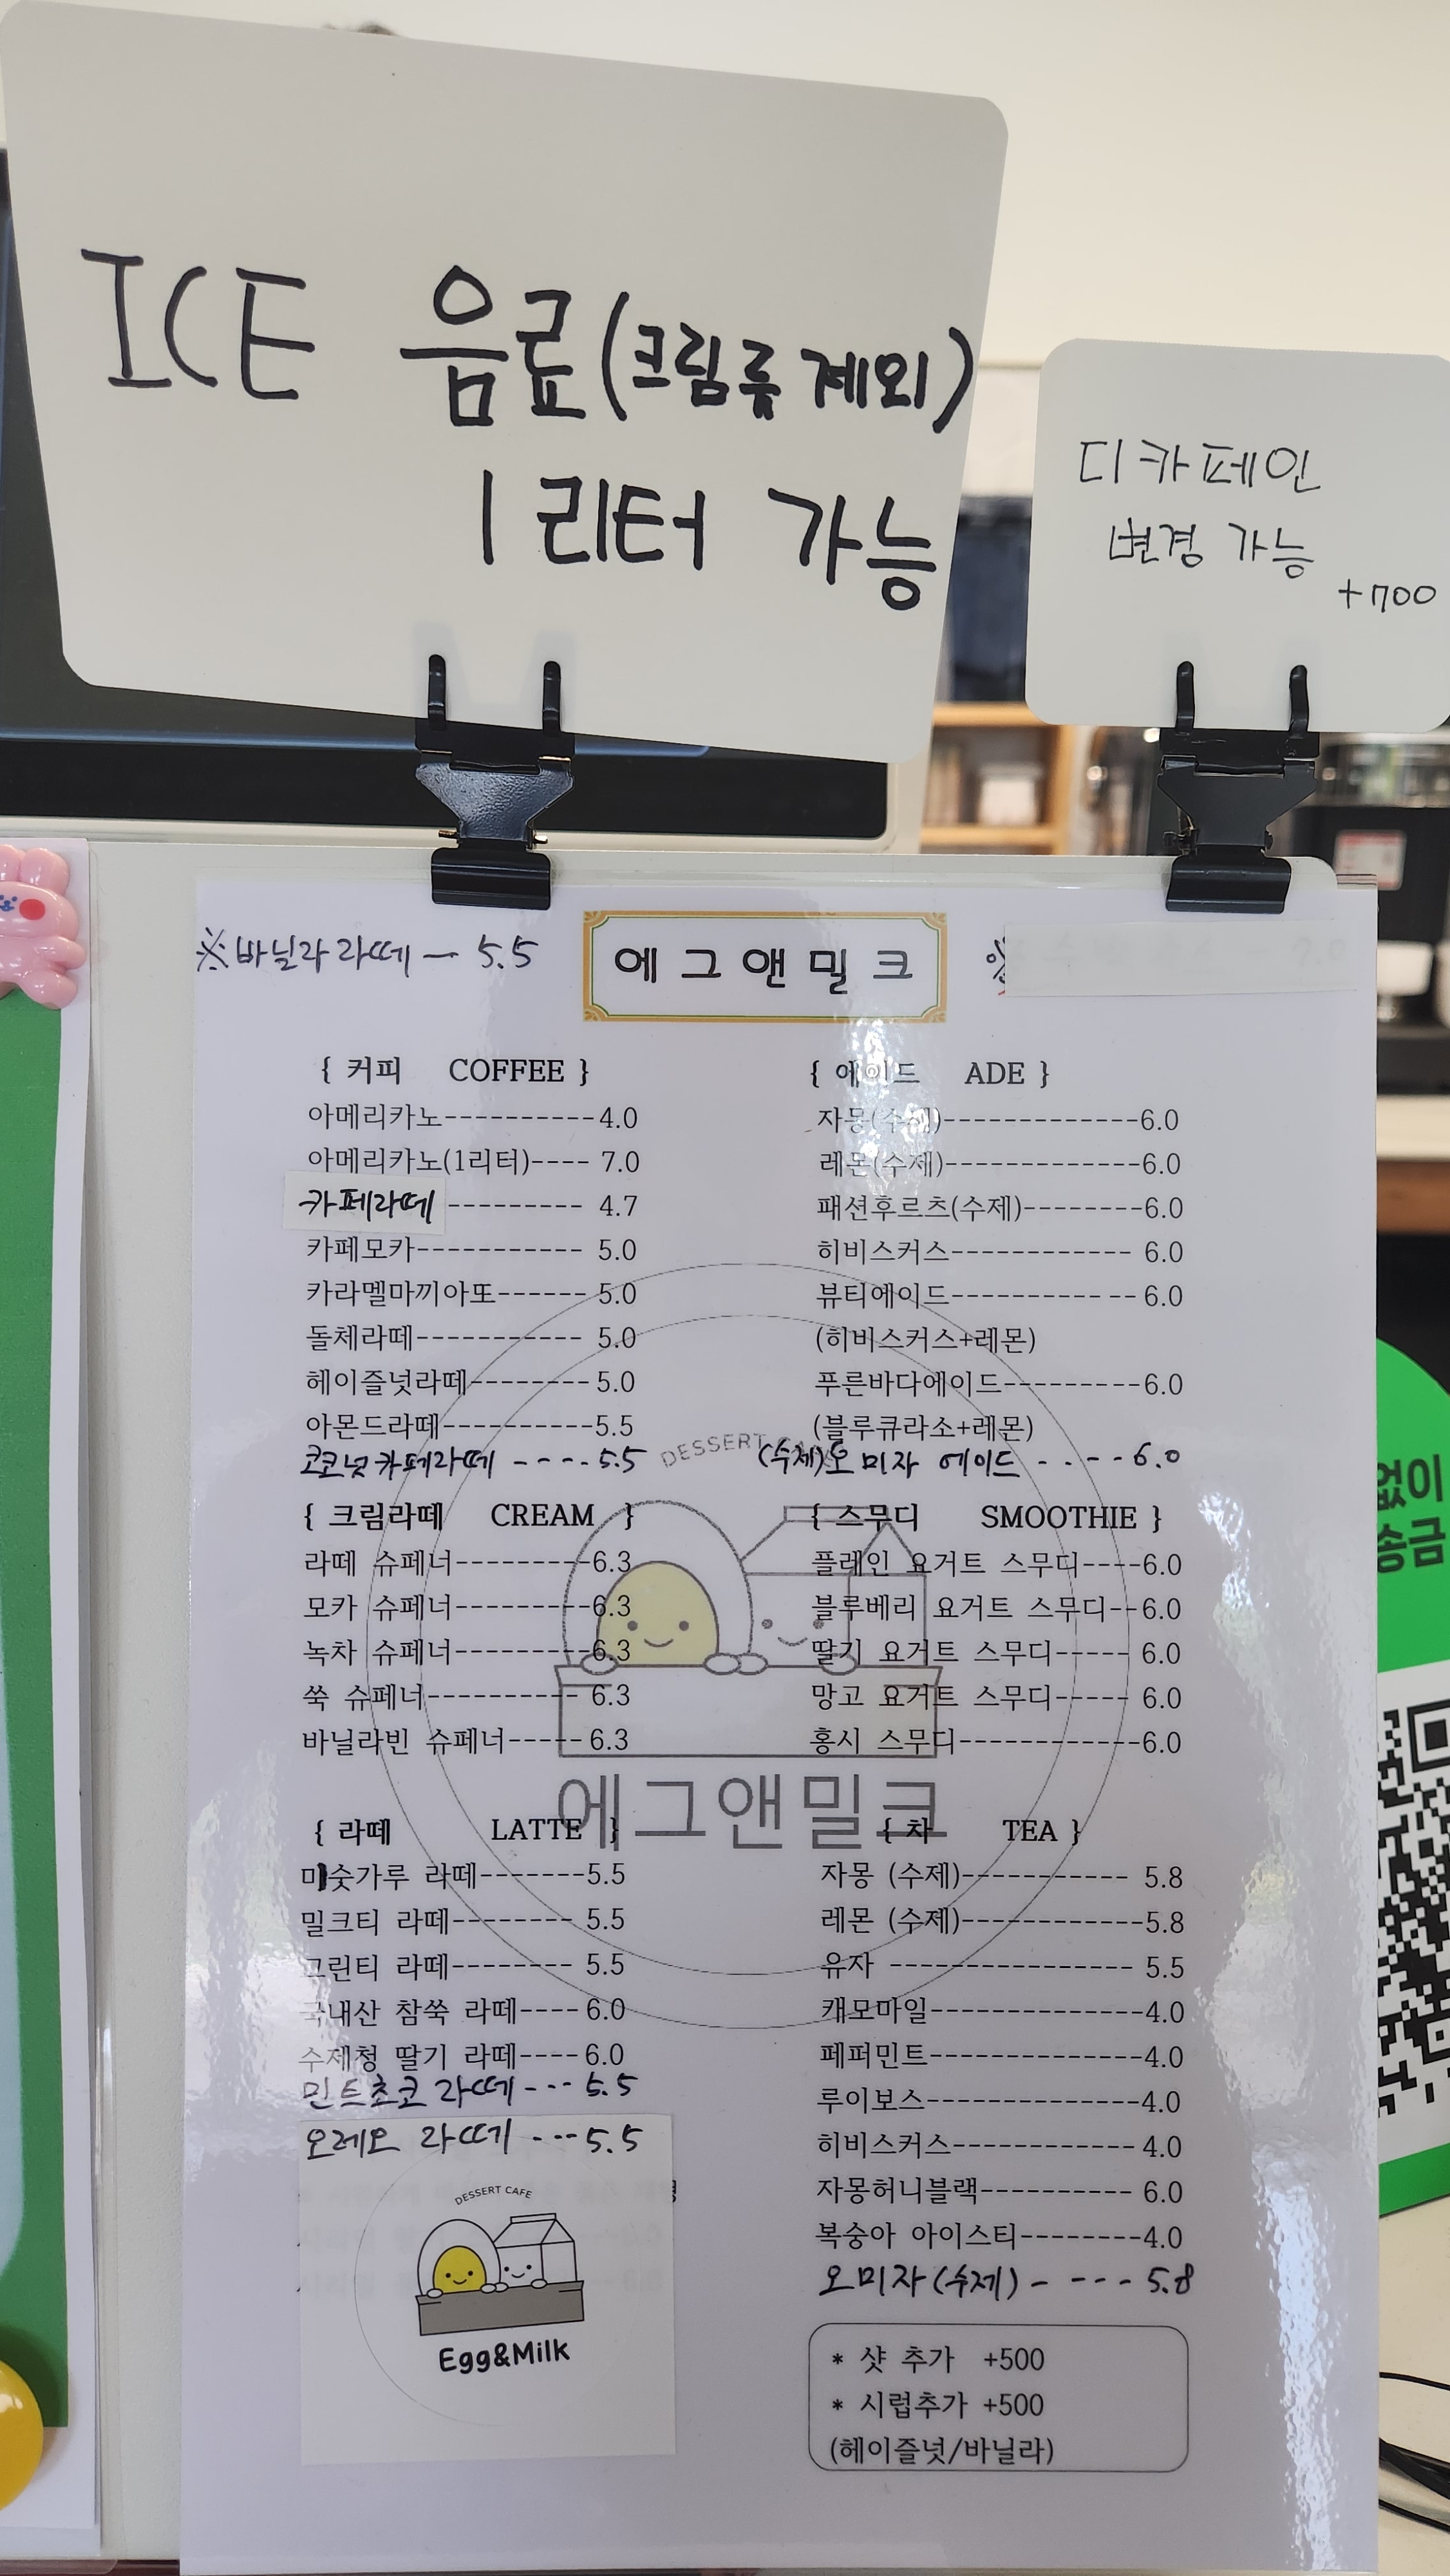 ICE 음료(크림류 제외)
1리터 가능
디카페인
변경 가능
+700
※바닐라라떼 — 5.5
에그앤밀크
※
{ 커피 COFFEE }
아메리카노----------4.0
아메리카노(1리터)---- 7.0
카페라떼 --------- 4.7
카페모카----------- 5.0
카라멜마끼아또------ 5.0
돌체라떼----------- 5.0
헤이즐넛라떼--------5.0
아몬드라떼----------5.5
코코넛카페라떼 ----5.5
{ 크림라떼 CREAM }
라떼 슈페너---------6.3
모카 슈페너---------6.3
녹차 슈페너---------6.3
쑥 슈페너---------- 6.3
바닐라빈 슈페너-----6.3
{ 라떼 LATTE }
미숫가루 라떼-------5.5
밀크티 라떼-------- 5.5
그린티 라떼-------- 5.5
국내산 참쑥 라떼----6.0
수제청 딸기 라떼----6.0
민트초코 라떼--- 5.5
오레오 라떼 ---5.5
DESSERT CAFE
Egg&Milk
{ 에이드 ADE }
자몽(수제)-------------6.0
레몬(수제)-------------6.0
패션후르츠(수제)--------6.0
히비스커스------------ 6.0
뷰티에이드---------- --6.0
(히비스커스+레몬)
푸른바다에이드---------6.0
(블루큐라소+레몬)
(수제)오미자 에이드 ----6.0
{ 스무디 SMOOTHIE }
플레인 요거트 스무디----6.0
블루베리 요거트 스무디--6.0
딸기 요거트 스무디----- 6.0
망고 요거트 스무디----- 6.0
홍시 스무디------------6.0
{ 차 TEA }
자몽 (수제)----------- 5.8
레몬 (수제)------------5.8
유자 ---------------- 5.5
캐모마일--------------4.0
페퍼민트--------------4.0
루이보스--------------4.0
히비스커스------------ 4.0
자몽허니블랙---------- 6.0
복숭아 아이스티--------4.0
오미자(수제)- ---- 5.8
* 샷 추가 +500
* 시럽추가 +500
(헤이즐넛/바닐라)
DESSERT
에그앤밀크
없이
송금